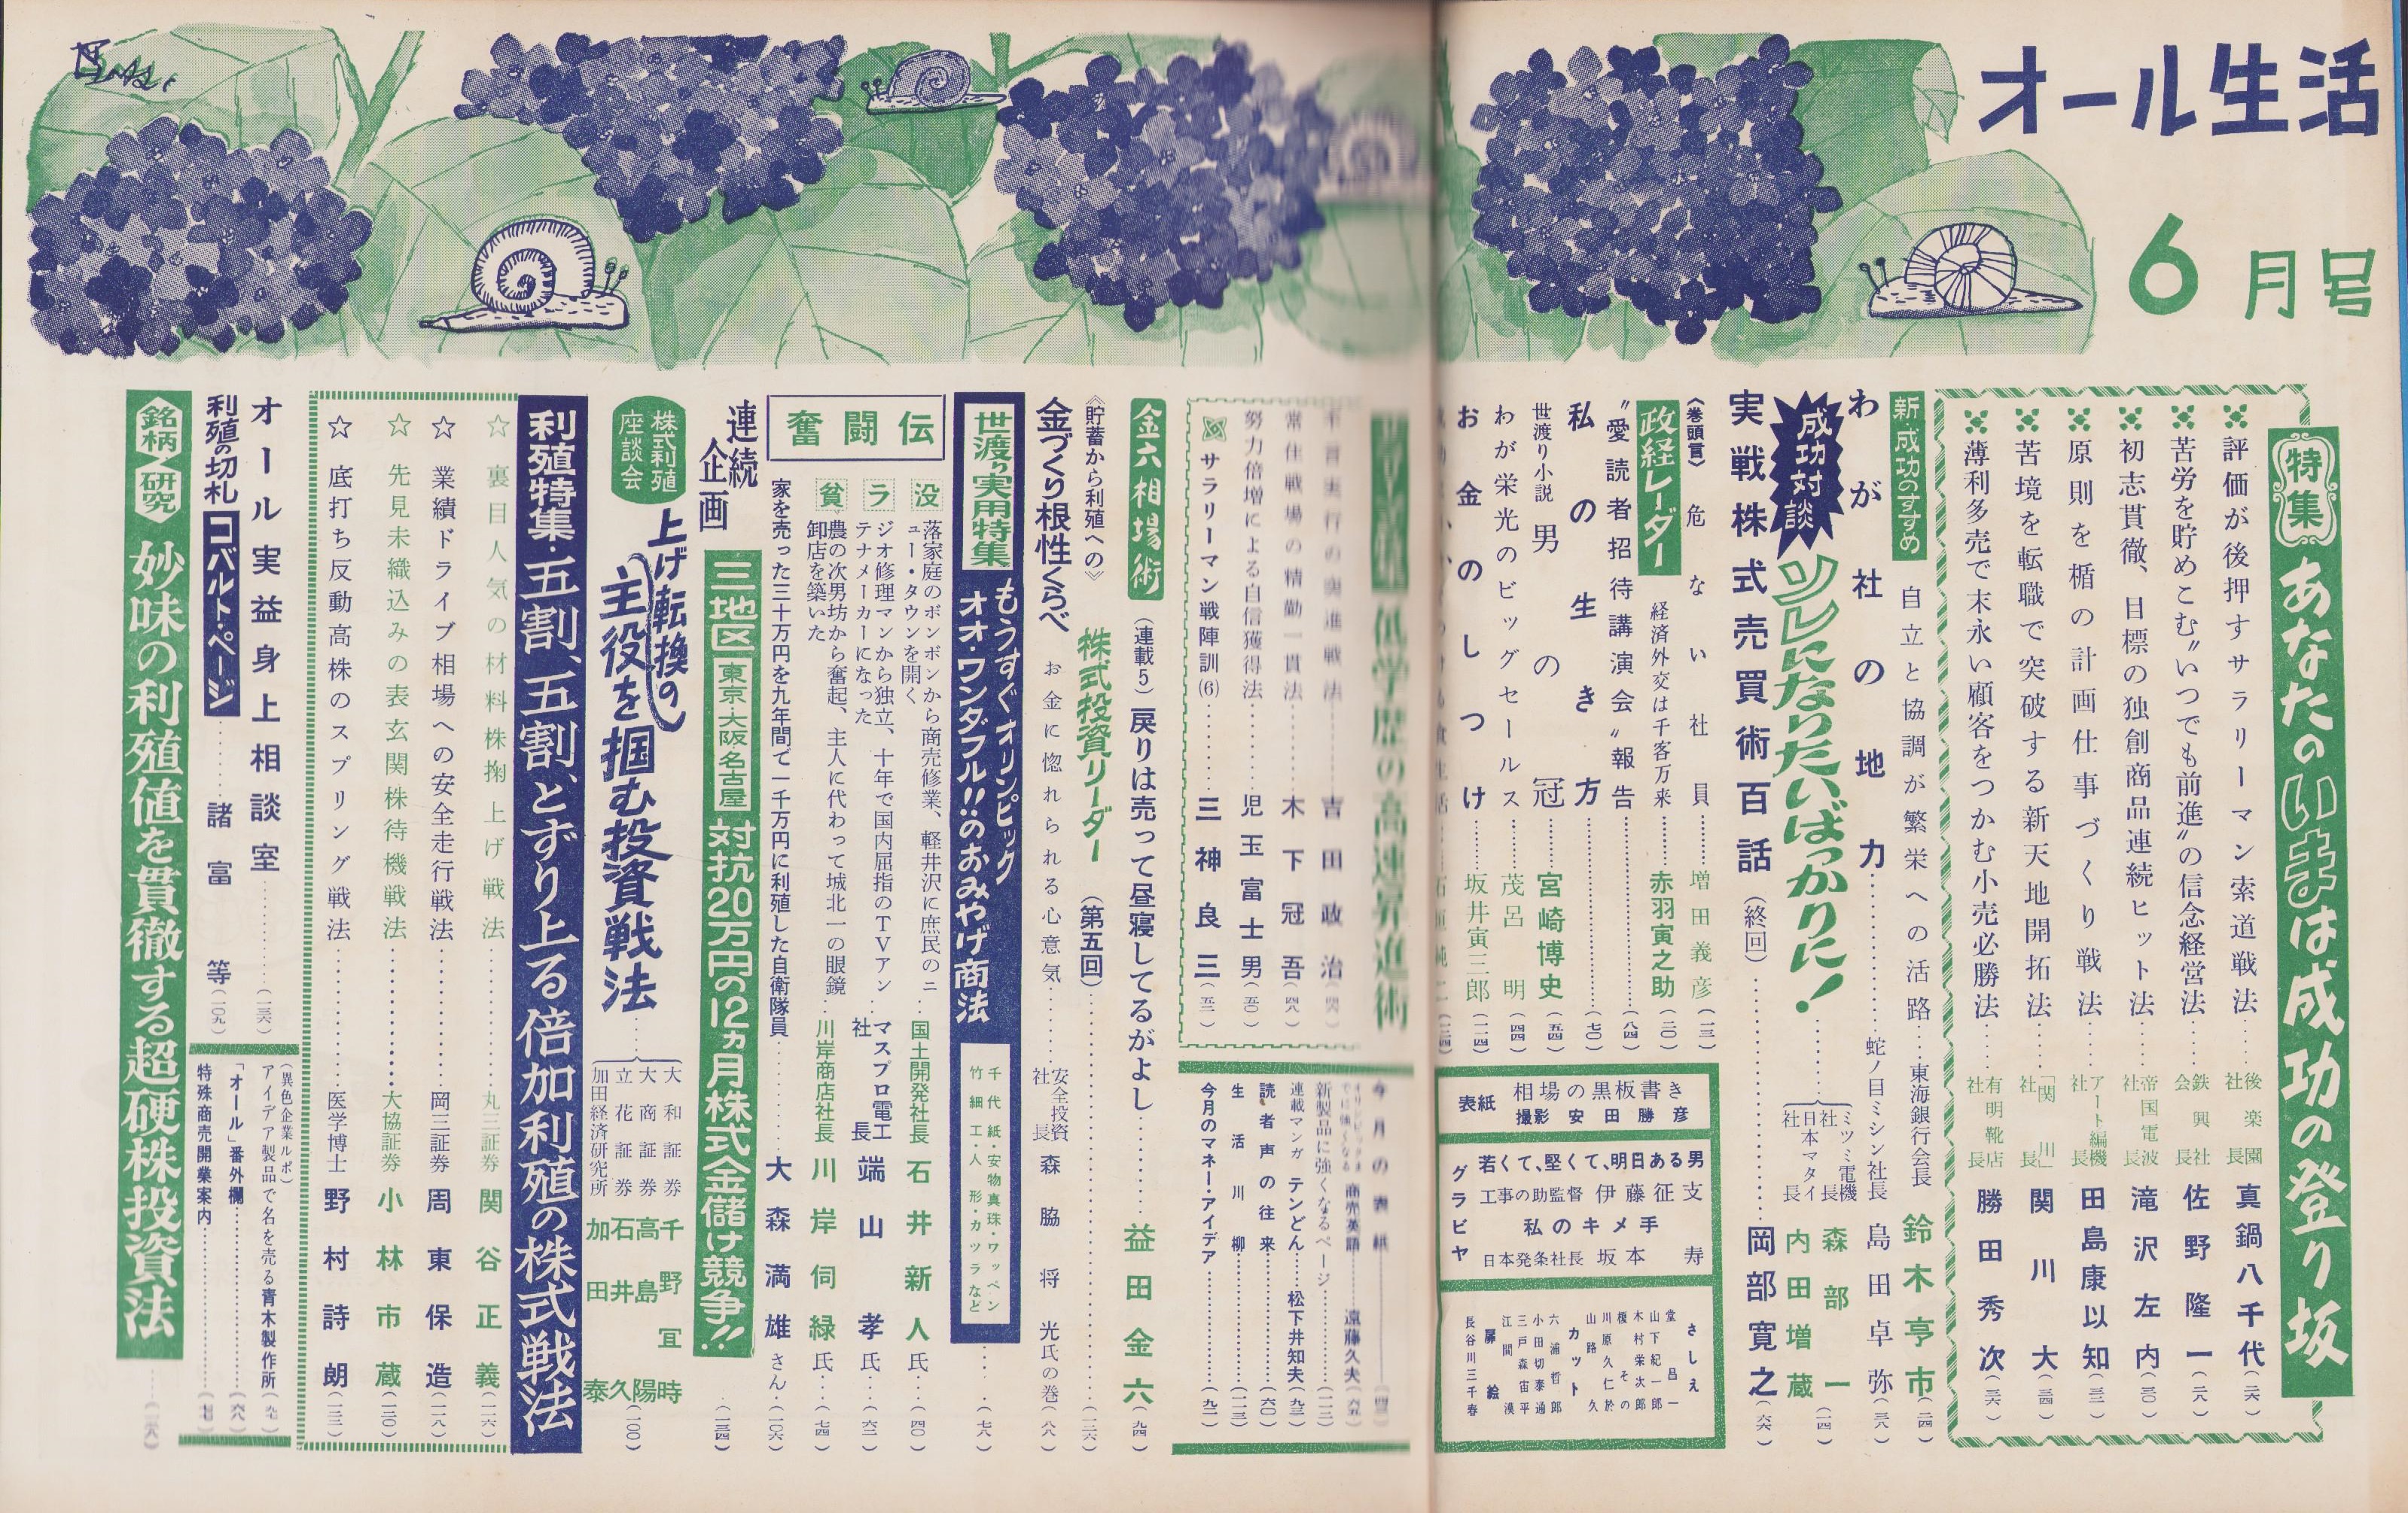 オール生活
6月号
特集 あなたのいまは成功の登り坂
評価が後押すサラリーマン索道戦法……後楽園社長 真鍋八千代(二六)
苦労を貯めこむ〝いつでも前進〟の信念経営法……鉄興社会長 佐野隆一(二八)
初志貫徹、目標の独創商品連続ヒット法……帝国電波社長 滝沢左内(三〇)
原則を楯の計画仕事づくり戦法……アート編機社長 田島康以知(三二)
苦境を転職で突破する新天地開拓法……「関川」社長 関川大(三四)
薄利多売で末永い顧客をつかむ小売必勝法……有明靴店社長 勝田秀次(三六)
新・成功のすすめ 自立と協調が繁栄への活路……東海銀行会長 鈴木亨市(二四)
わが社の地力……蛇ノ目ミシン社長 島田卓弥(三八)
成功対談 ソレになりたいばっかりに!……
ミツミ電機社長 森部一
日本マタイ社長 内田増蔵
(一四)
実戦株式売買術百話(終回)……岡部寛之(六六)
〈巻頭言〉危ない社員……増田義彦(一三)
政経レーダー 経済外交は千客万来……赤羽寅之助(二〇)
〝愛読者招待講演会〟報告……(八四)
私の生き方……(七〇)
世渡り小説 男の冠……宮崎博史(五四)
わが栄光のビッグセールス……茂呂明(四四)
お金のしつけ……坂井寅三郎(一二四)
表紙 相場の黒板書き
撮影 安田勝彦
グラビヤ
若くて、堅くて、明日ある男
工事の助監督 伊藤征支
私のキメ手
日本発条社長 坂本寿
さしえ
堂昌一
山下紀一郎
木村栄次郎
榎そのの
川原久仁於
山路久
カット
六浦哲郎
小田切泰通
三戸森宙平
江間漠
扉絵
長谷川三千春
低学歴の高速昇進術
不言実行の突進戦法……吉田政治
常住戦場の精勤一貫法……木下冠吾(四八)
努力倍増による自信獲得法……児玉富士男(五〇)
サラリーマン戦陣訓(6)……三神良三(五二)
今月の表紙
商売英語……遠藤久夫
新製品に強くなるページ……(一一二)
連載マンガ テンどん……松下井知夫(九三)
読者声の往来……(六〇)
生活川柳……(一一三)
今月のマネー・アイデア……(九二)
金六相場術(連載5)戻りは売って昼寝してるがよし……益田金六(九四)
株式投資リーダー(第五回)……(一二六)
《貯蓄から利殖への》
金づくり根性くらべ お金に惚れられる心意気……安全投資社長 森脇将光氏の巻(八八)
世渡り実用特集 もうすぐオリンピック
オオ・ワンダフル!!のおみやげ商法
千代紙・安物真珠・ワッペン
竹細工・人形・カツラなど
……(七六)
奮闘伝
没落家庭のボンボンから商売修業、軽井沢に庶民のニュー・タウンを開く……国土開発社長 石井新人氏…(四〇)
ラジオ修理マンから独立、十年で国内屈指のTVアンテナメーカーになった……マスプロ電工社長 端山孝氏…(六二)
貧農の次男坊から奮起、主人に代わって城北一の眼鏡卸店を築いた……川岸商店社長 川岸伺緑氏…(七四)
家を売った三十万円を九年間で一千万円に利殖した自衛隊員……大森満雄さん…(一〇六)
連続企画 三地区 東京・大阪・名古屋 対抗20万円の12ヵ月株式金儲け競争!!……(一三四)
株式利殖座談会 上げ転換の主役を掴む投資戦法……
大和証券 千野冝時
大商証券 高島陽
立花証券 石井久
加田経済研究所 加田泰
(一〇〇)
利殖特集・五割、五割、とずり上る倍加利殖の株式戦法
☆裏目人気の材料株掬上げ戦法……丸三証券 関谷正義(一二六)
☆業績ドライブ相場への安全走行戦法……岡三証券 周東保造(一二八)
☆先見未織込みの表玄関株待機戦法……大協証券 小林市蔵(一三〇)
☆底打ち反動高株のスプリング戦法……医学博士 野村詩朗(一三二)
オール実益身上相談室……(一三六)
利殖の切札 コバルト・ページ……諸富等(一〇九)
(異色企業ルポ)
アイデア製品で名を売る青木製作所(九七)
「オール」番外欄……(六八)
特殊商売開業案内……
銘柄研究 妙味の利殖値を貫徹する超硬株投資法……